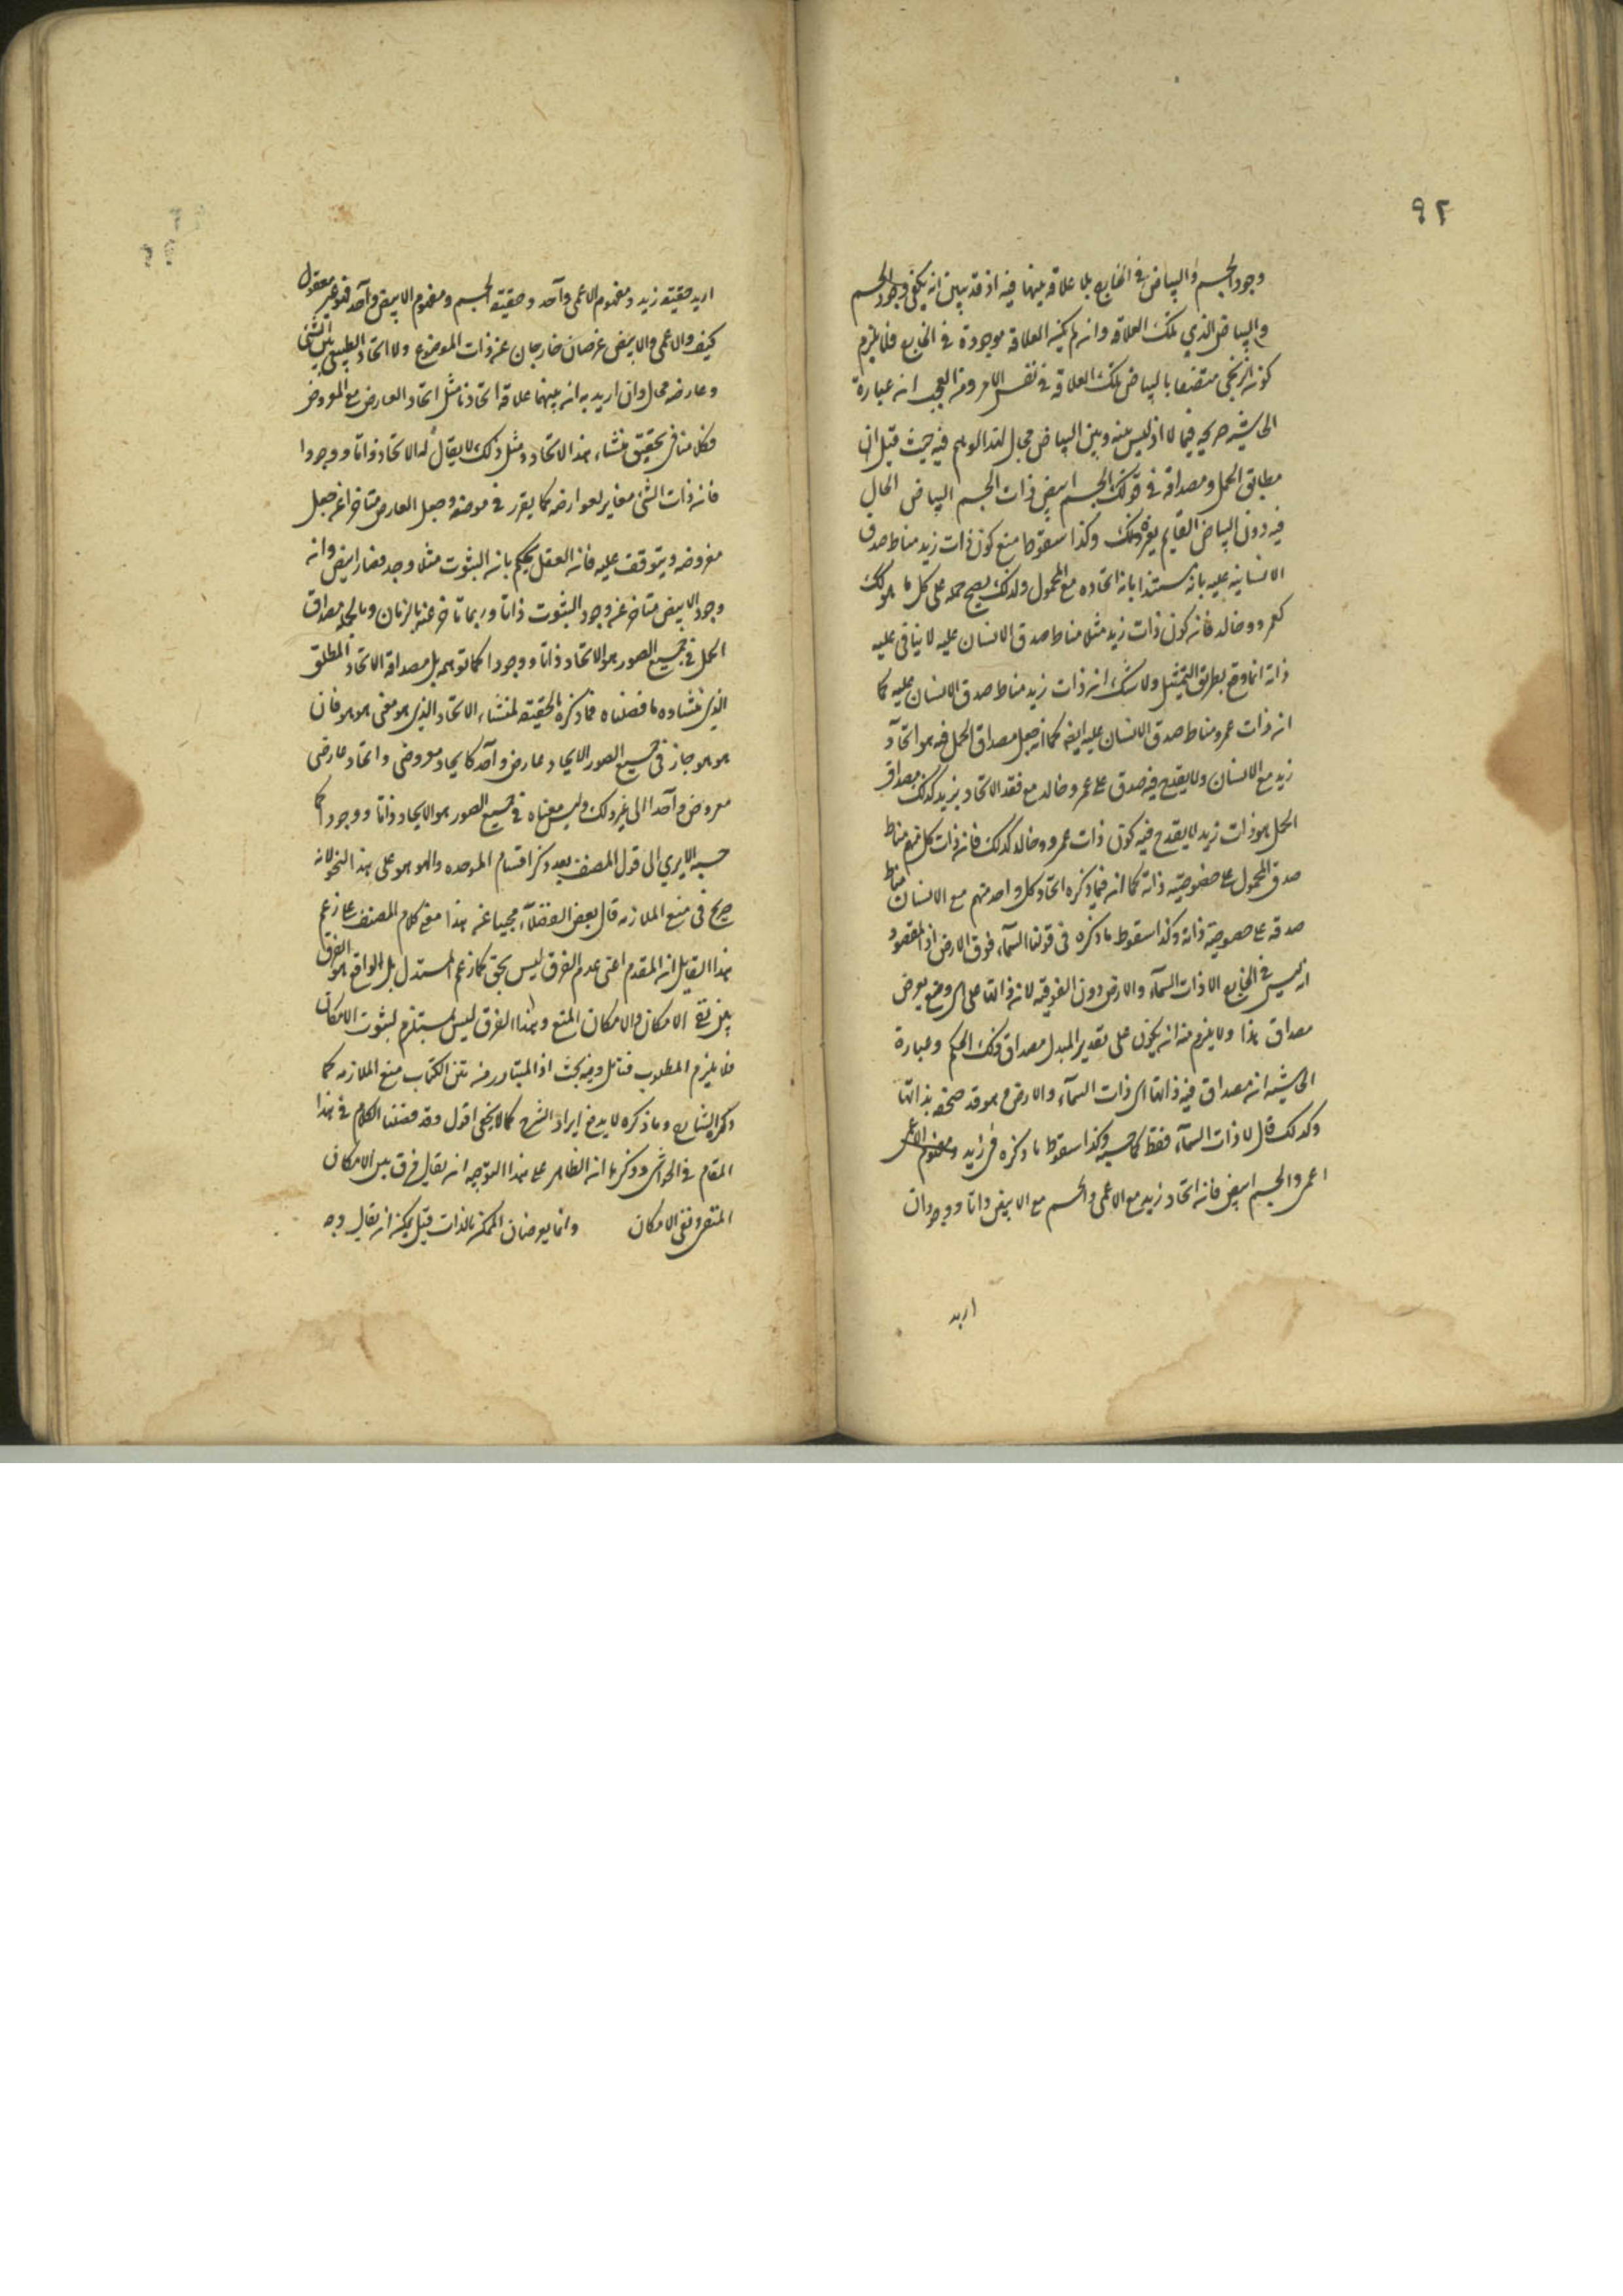 ٩٢
وجود الجسم والبياض في الخارج بلا علاقة بينهما فيه اذ قد تبين انه يكفي وجود الجسم
والبياض الذي بتلك العلاقة وان لم يكن العلاقة موجودة في الخارج فلا يلزم
كون الزنجي متصفا بالبياض بتلك العلاقة في نفس الامر ومن العجب ان عبارة
الحاشية صريحة فيما لا اذ ليس بينه وبين البياض مجال لهذا الوهم فيه حيث قيل ان
مطابق الحمل ومصداقه في قولك الجسم ابيض ذات الجسم البياض الحال
فيه دون البياض القايم بغيره وكذا سقوط منع كون ذات زيد مناط صدق
الانسانية عليه بانه مستندا بان اتحاده مع المحمول ولذلك يصح حمله على كل ما هو كك
كعمرو وخالد فان كون ذات زيد مثلا مناط صدق الانسان عليه لا ينافي عليه
ذاته انما وقع بطريق التمثيل ولا شك ان ذات زيد مناط صدق الانسان عليه كما
ان ذات عمرو مناط صدق الانسان عليه ايضا كما انه جعل مصداق الحمل فيه هو اتحاد
زيد مع الانسان ولا يقدح فيه صدق على عمرو خالد مع فقد الاتحاد بزيد كذلك مصداق
الحمل هو ذات زيد لا يقدح فيه كون ذات عمرو وخالد كذلك فان ذات كل منهم مناط
صدق المحمول على خصوصية ذاته كما ان فيما ذكره اتحاد كل واحد منهم مع الانسان مناط
صدقه على خصوصية ذاته وكذا سقوط ما ذكره في قولنا السماء فوق الارض اذ المقصود
انه ليس في الخارج الا ذات السماء والارض دون الفوقية لان ذاتها على اي وضع يعرض
مصداق هذا ولا يلزم منه ان يكون على تقدير التبدل مصداق ذلك الحكم وعبارة
الحاشية ان مصداق فيه ذاتها اي ذات السماء والارض
وكذلك قال لا ذات السماء فقط كما حسبه وكذا سقوط ما ذكره في زيد ومفهوم الاعمى
اعمى والجسم ابيض فان اتحاد زيد مع الاعمى والجسم مع الابيض ذاتا ووجودا ان
اريد
اريد حقيقة زيد ومفهوم الاعمى واحد وحقيقة الجسم ومفهوم الابيض واحد فهو غير معقول
كيف والاعمى والابيض عرضان خارجان عن ذات الموضوع ولا اتحاد الطبيعي بين الشئ
وعارضه محال وان اريد به ان بينهما علاقة اتحاد ما مثل اتحاد العارض مع المعروض
فكلامنا في تحقيق منشاء هذا الاتحاد ومثل ذلك لا يقال له الاتحاد ذاتا ووجودا
فان ذات الشئ مغاير لعوارضه كما يقرر في موضعه وجعل العارض متاخر عن جعل
معروضه ويتوقف عليه فان العقل يحكم بان الثبوت مثلا وجد فصار ابيض وانه
وجود الابيض متاخر عن وجود الثبوت ذاتا وربما تاخر عنه بالزمان وبالجملة مصداق
الحمل في جميع الصور هو الاتحاد ذاتا ووجودا كما توهم بل مصداقه الاتحاد المطلق
الذي منشاوه ما فصلناه فما ذكره بالحقيقة لمنشاء الاتحاد الذي هو معنى هو هو فان
هو هو جاز في جميع الصور الاتحاد عارض واحد كاتحاد معروضي واتحاد عارضي
معروض واحد الى غير ذلك وليس معناه في جميع الصور هو الاتحاد ذاتا ووجودا كما
حسبه الا يرى الى قول المصنف بعد ذكر اقسام الموحدة والهوهو على هذا النحو لانه
صريح في منع الملازمة قال بعض الفضلاء مجيبا عنه هذا معنى كلام المصنف على زعم
هذا القايل ان المقدم اعني عدم الفرق ليس بحق كما زعم المستدل بل الواقع هو الفرق
بين نفي الامكان والامكان المنفي وهذا الفرق ليس يستلزم لثبوت الامكان
فلا يلزم المطلوب فتامل وفيه بحث اذ المتبادر من متن الكتاب منع الملازمة كما
ذكره الشارح وما ذكره لا يدفع ايراد الشرح كما لا يخفى اقول وقد فصلنا الكلام في هذا
المقام في الحواشي وذكرنا ان الظاهر على هذا التوجيه ان يقال فرق بين الامكان
المنفي ونفي الامكان وانما يعرضان الممكن بالذات قيل يمكن ان يقال وجه